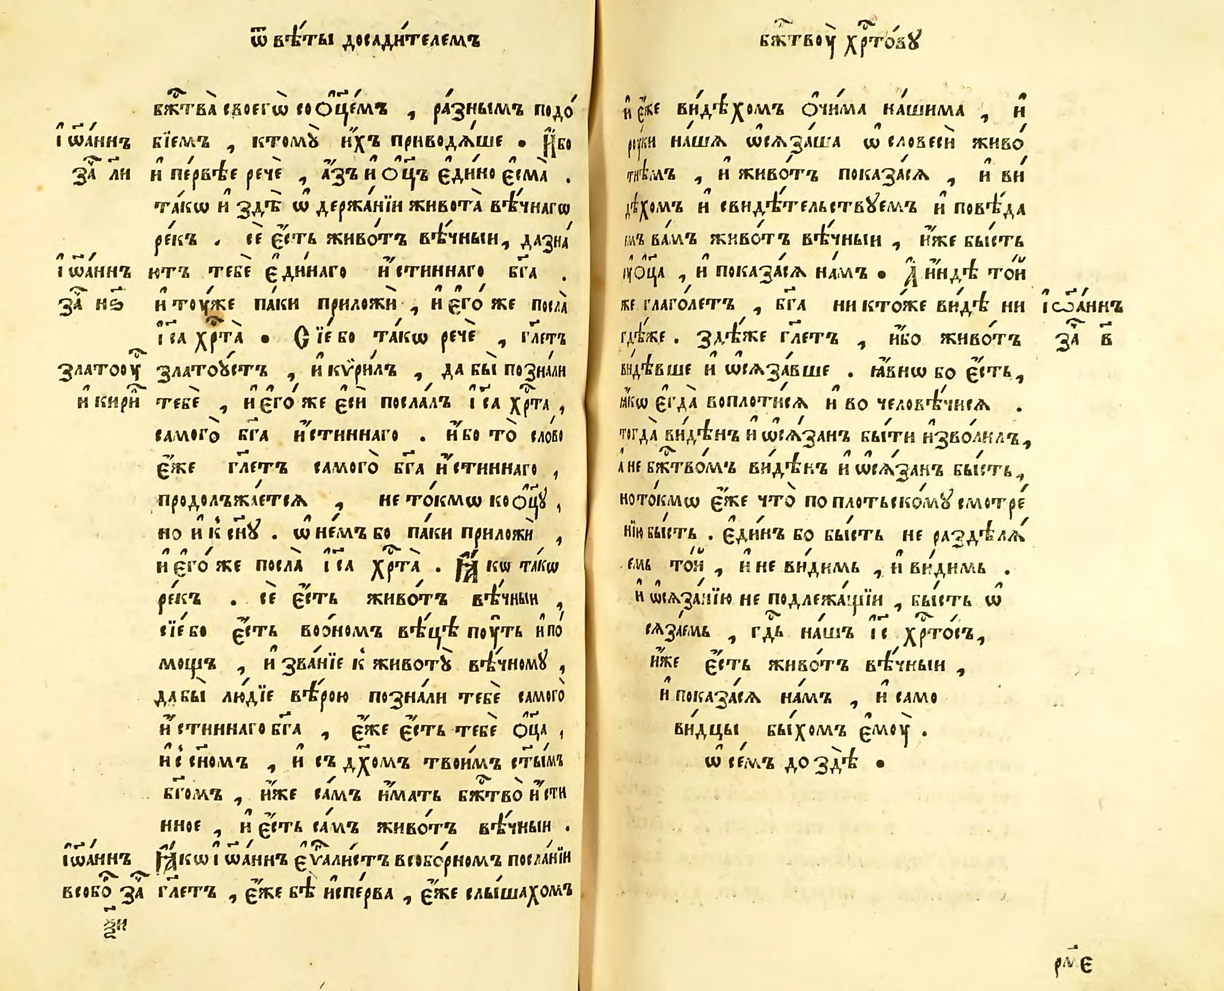 ѿвѣ́ты досади́телемъ
бж҃твꙋ̀ хрⷭ҇то́вꙋ
бж҃тва̀ своегѡ̀ со ѻ҆ц҃е́мъ , ра́знымъ подо́
і҆ѡа́ннъ бїемъ , ктомꙋ̀ и҆́хъ приводѧ́ше . И҆́бо
за҃ ли и҆ пе́рвѣе речѐ , а҆́зъ и҆ ѻ҆ц҃ъ є҆ди́но є҆сма̀ .
та́кѡ и҆ здѣ̀ ѡ҆ держа́нїи живота̀ вѣ́чнагѡ
ре́къ . сѐ є҆́сть живо́тъ вѣ́чныи , да зна́
і҆ѡа́ннъ ютъ тебѐ є҆ди́наго и҆́стиннаго бг҃а .
за҃ нѕ и҆ тоу́же па́ки приложѝ , и҆ є҆го́ же посла̀
і҆с҃а хрⷭ҇та̀ . Сїе́ бо та́кѡ речѐ , гл҃етъ
златооуⷭ҇ златоꙋ́стъ , и҆ кѷри́лъ , да бы̀ позна́ли
и҆ кириⷧ҇ тебѐ , и҆ є҆го́ же є҆сѝ посла́лъ і҆с҃а хрⷭ҇та̀ ,
самого̀ бг҃а и҆́стиннаго . и҆́бо то̀ сло́во
є҆́же гл҃етъ самого̀ бг҃а и҆́стиннаго ,
продолъжа́етсѧ , не то́кмѡ ко ѻ҆ц҃ꙋ̀ ,
но и҆ к сн҃ꙋ . ѡ҆ не́мъ бо па́ки приложѝ ,
и҆ є҆го́ же посла̀ і҆с҃а хрⷭ҇та̀ . Ꙗ҆́кѡ та́кѡ
ре́къ . сѐ є҆́сть живо́тъ вѣ́чныи ,
сїе́ бо є҆́сть во о́номъ вѣ́цѣ поу́ть и҆ по́
мощъ , и҆ зва́нїе к животꙋ̀ вѣ́чномꙋ ,
да бы̀ лю́дїе вѣ́рою позна́ли тебѐ самого̀
и҆́стиннаго бг҃а , є҆́же є҆́сть тебѐ ѻ҆ц҃а ,
и҆ с сн҃омъ , и҆ съ дх҃омъ твои́мъ ст҃ы́мъ
бг҃омъ , и҆́же са́мъ и҆́мать бж҃тво̀ и҆́сти
нное , и҆ є҆́сть са́мъ живо́тъ вѣ́чныи .
і҆ѡа́ннъ Ꙗ҆́кѡ і҆ѡа́ннъ є҆ѵⷢ҇али́стъ в собо́рномъ посла́нїи
в собоⷬ҇ за҃ гл҃етъ , є҆́же бѣ̀ и҆спе́рва , є҆́же слы́шахомъ
ѯи
и҆ є҆́же ви́дѣхомъ ѻ҆чи́ма на́шима , и҆
роу́ки на́шѧ ѡ҆сѧза́ша ѡ҆ словесѝ живо́
тнѣмъ , и҆ живо́тъ показа́сѧ , и҆ ви́
дѣхомъ и҆ свидѣ́тельствꙋемъ и҆ повѣ́да
емъ ва́мъ живо́тъ вѣ́чныи , и҆́же бы́сть
ꙋ ѻ҆ц҃а , и҆ показа́сѧ на́мъ . А҆ и҆́ндѣ то́й
же глаго́летъ , бг҃а никто́же ви́дѣ ни і҆ѡа́ннъ
гдѣ́же . здѣ́же гл҃етъ , и҆́бо живо́тъ за҃ в
ви́дѣвше и҆ ѡ҆сѧза́вше . ꙗ҆́внѡ бо є҆́сть ,
ꙗ҆́кѡ є҆гда̀ воплоти́сѧ и҆ во человѣ́чисѧ .
тогда̀ ви́дѣнъ и҆ ѡ҆сѧ́занъ бы́ти и҆зво́лилъ ,
а҆ не бж҃тво́мъ ви́дѣнъ и҆ ѡ҆сѧ́занъ бы́сть ,
но то́кмѡ є҆́же что̀ по пло́тьскомꙋ смотре́
нїю бы́сть . є҆ди́нъ бо бы́сть не раздѣлѧ́
емь то́й , и҆ не ви́димь , и҆ ви́димь .
и҆ ѡ҆сѧза́нїю не подлежа́щїи , бы́сть ѡ҆
сѧза́емь , гдⷭ҇ь на́шъ і҆с҃ хрⷭ҇то́съ ,
и҆́же є҆́сть живо́тъ вѣ́чныи ,
и҆ показа́сѧ на́мъ , и҆ само
ви́дцы бы́хомъ є҆моу̀ .
ѡ҆ се́мъ до здѣ̀ .
рм҃є